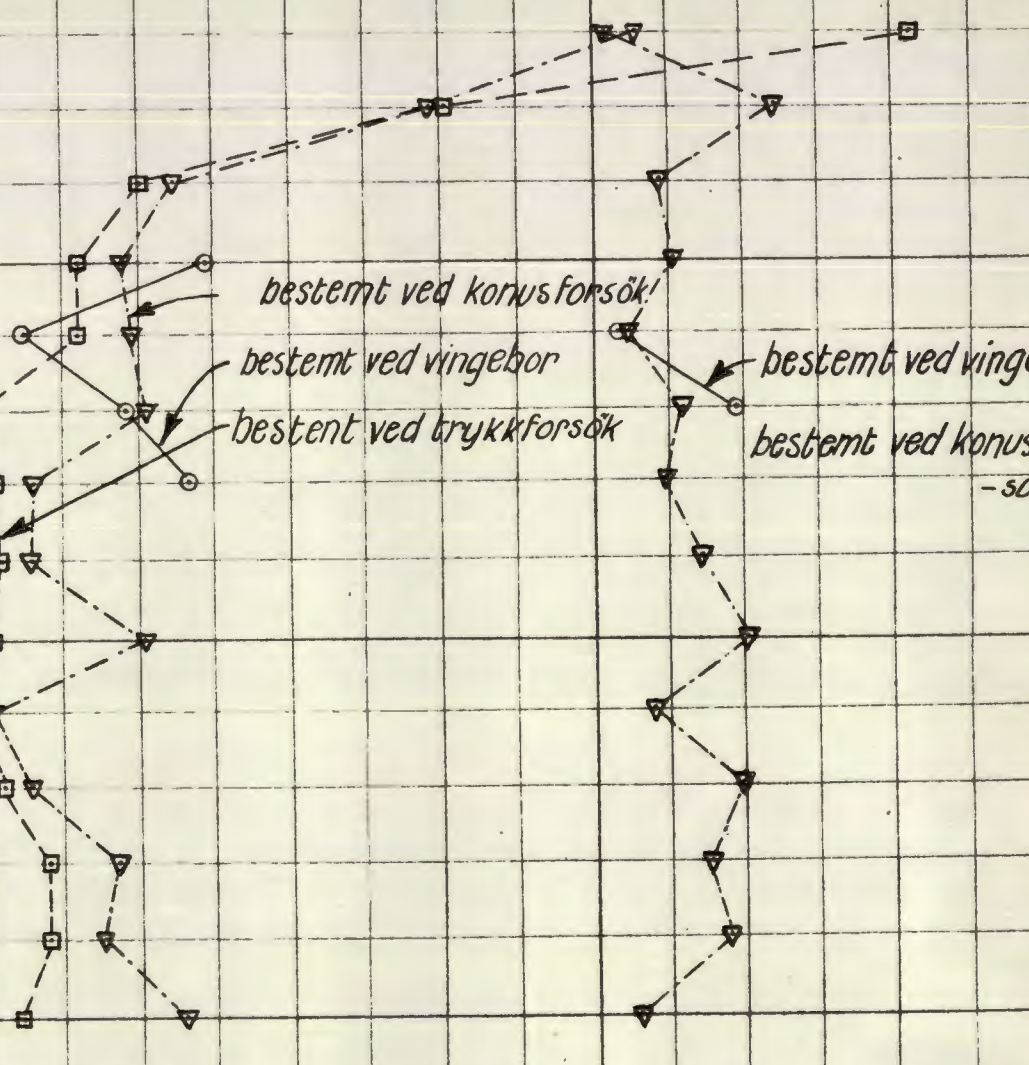 bestemt ved konusforsök!
bestemt ved vingebor
bestent ved trykkforsök
bestemt ved vinge
bestemt ved konus